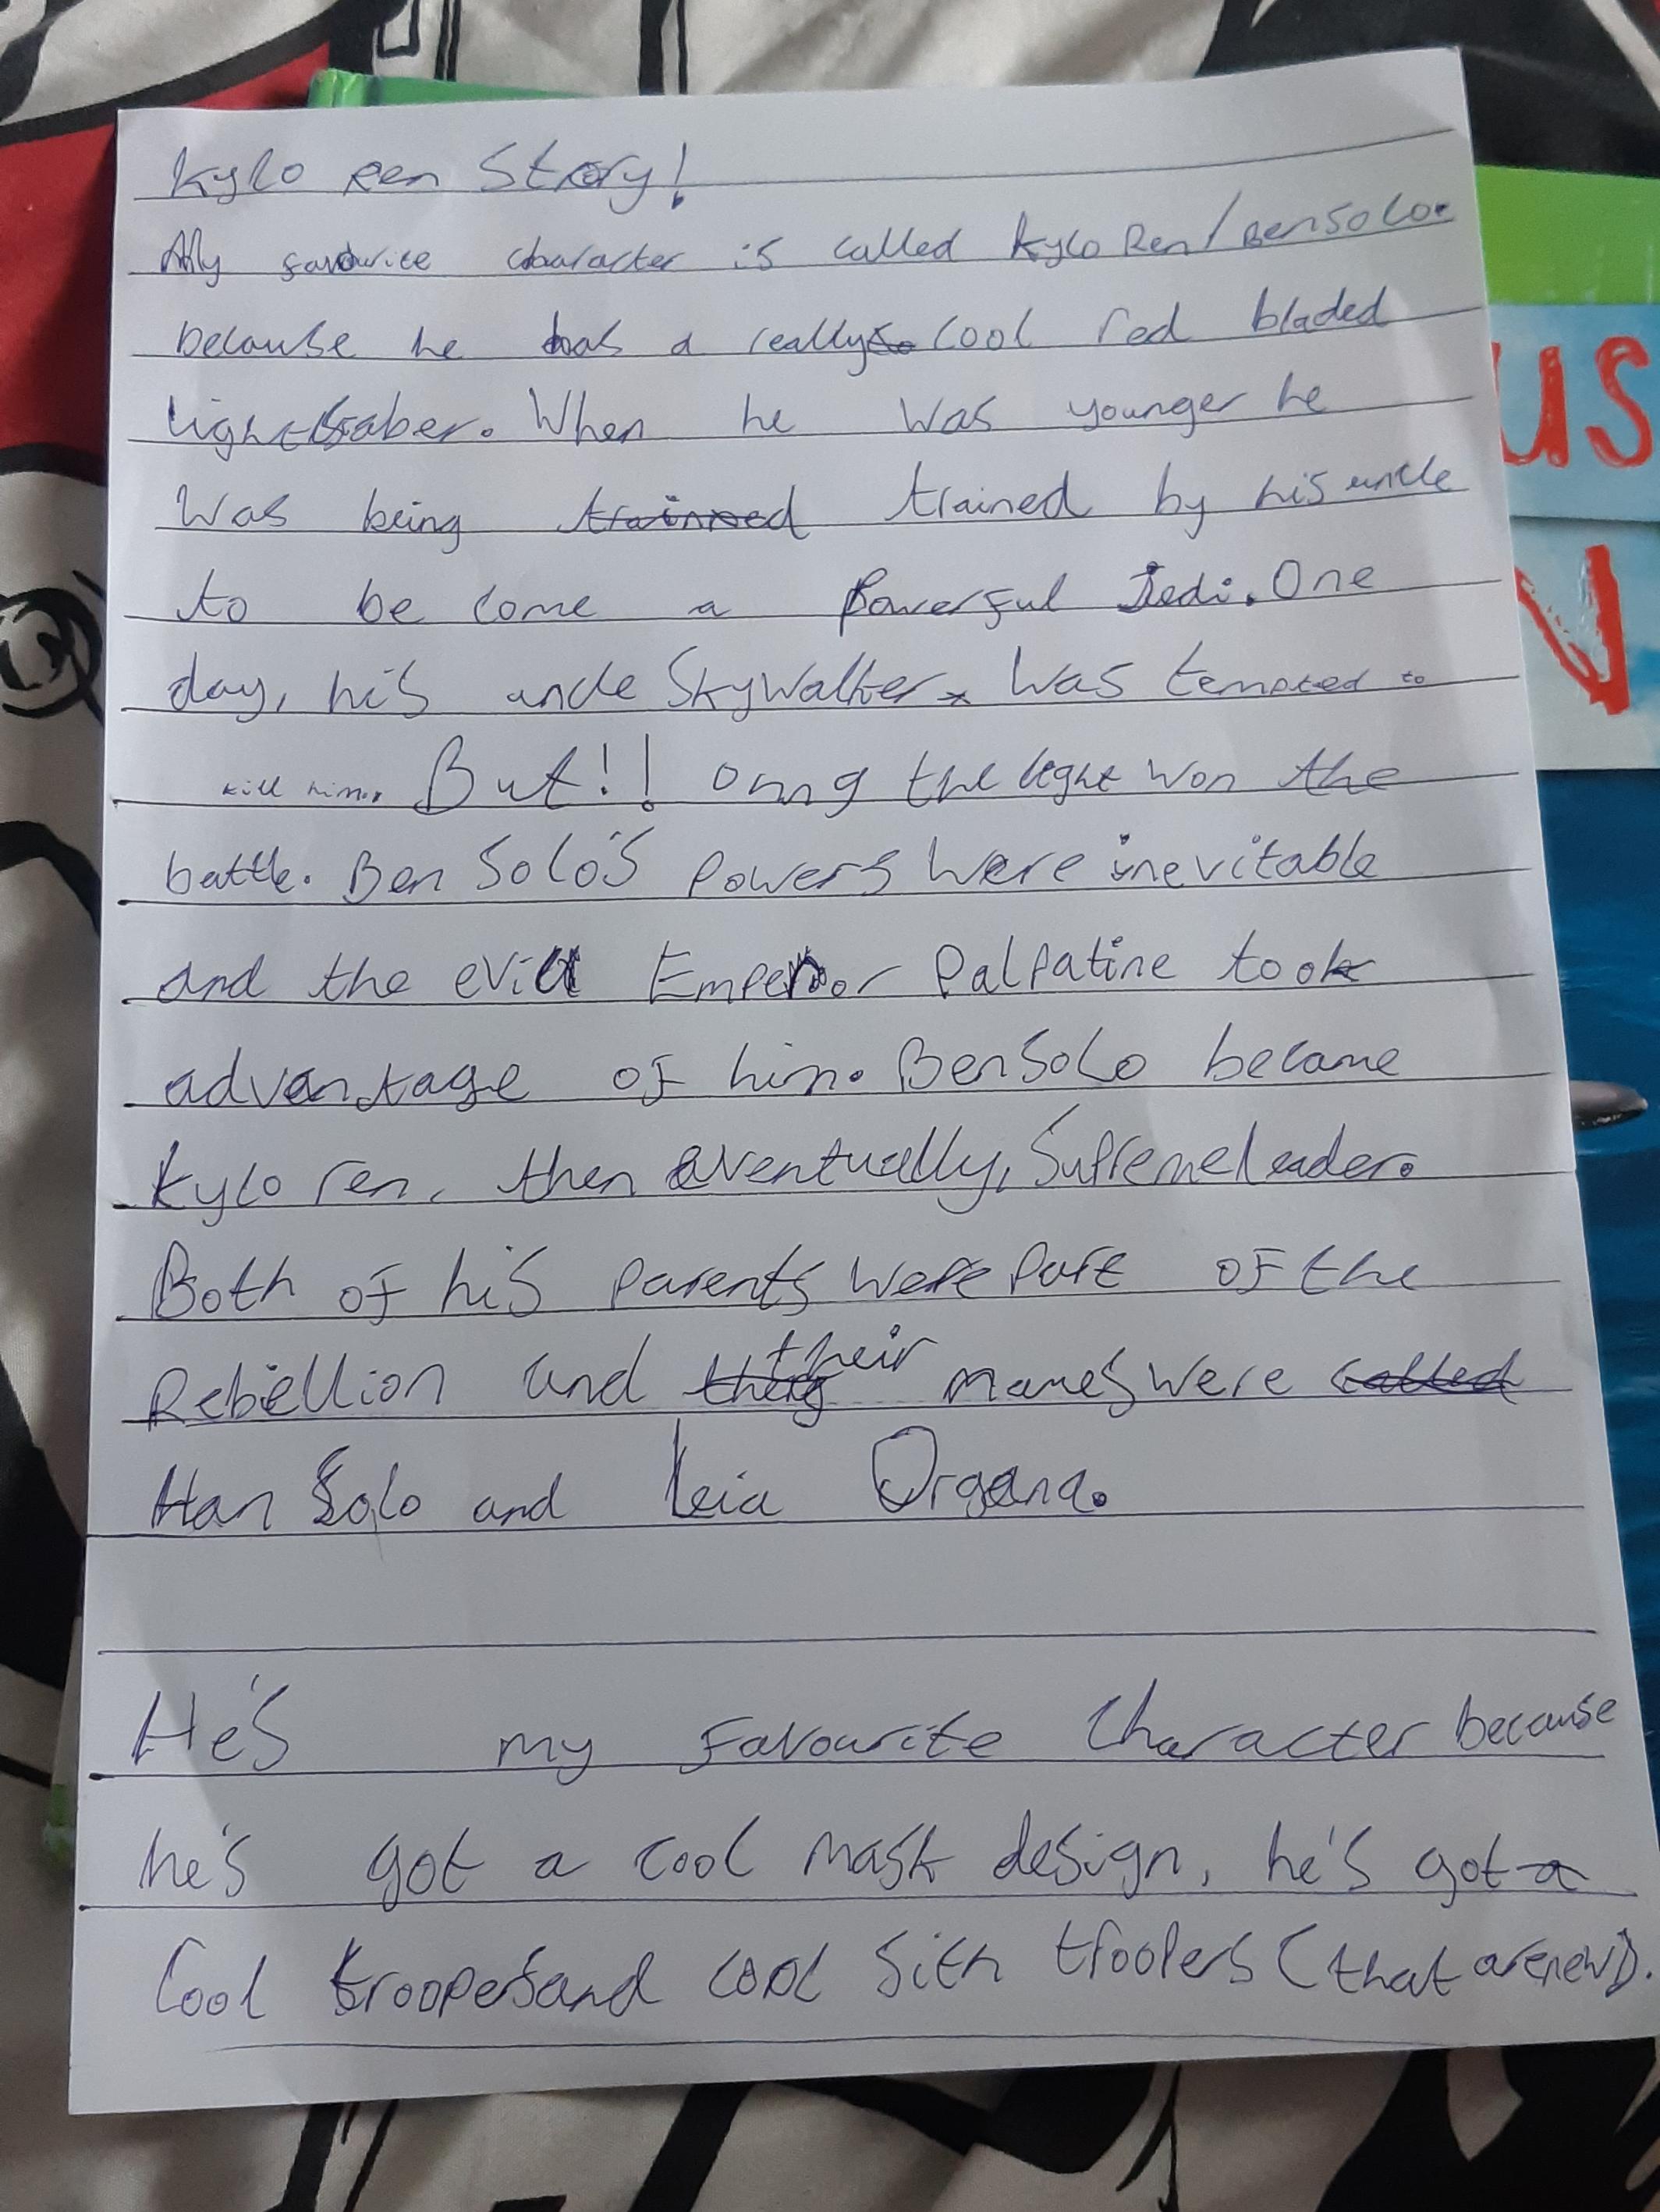 Kylo Ren Story!
My favourite character is called Kylo Ren/Ben Solo.
because he has a really so cool red bladed
lightsaber. When he was younger he
was being trainned trained by his uncle
to be come a powerful Jedi. One
day, his uncle Skywalker was tempted to
kill him. But!! omg the light won the
battle. Ben Solo's powers were inevitable
and the evil Emperor Palpatine took
advantage of him. Ben Solo became
Kylo ren, then eventually, Supreme leader.
Both of his parents were part of the
Rebellion and their names were called
Han Solo and Leia Organa.
He's my favourite character because
he's got a cool mask design, he's got a
cool troopers and cool Sith troopers (that are new).
US
N